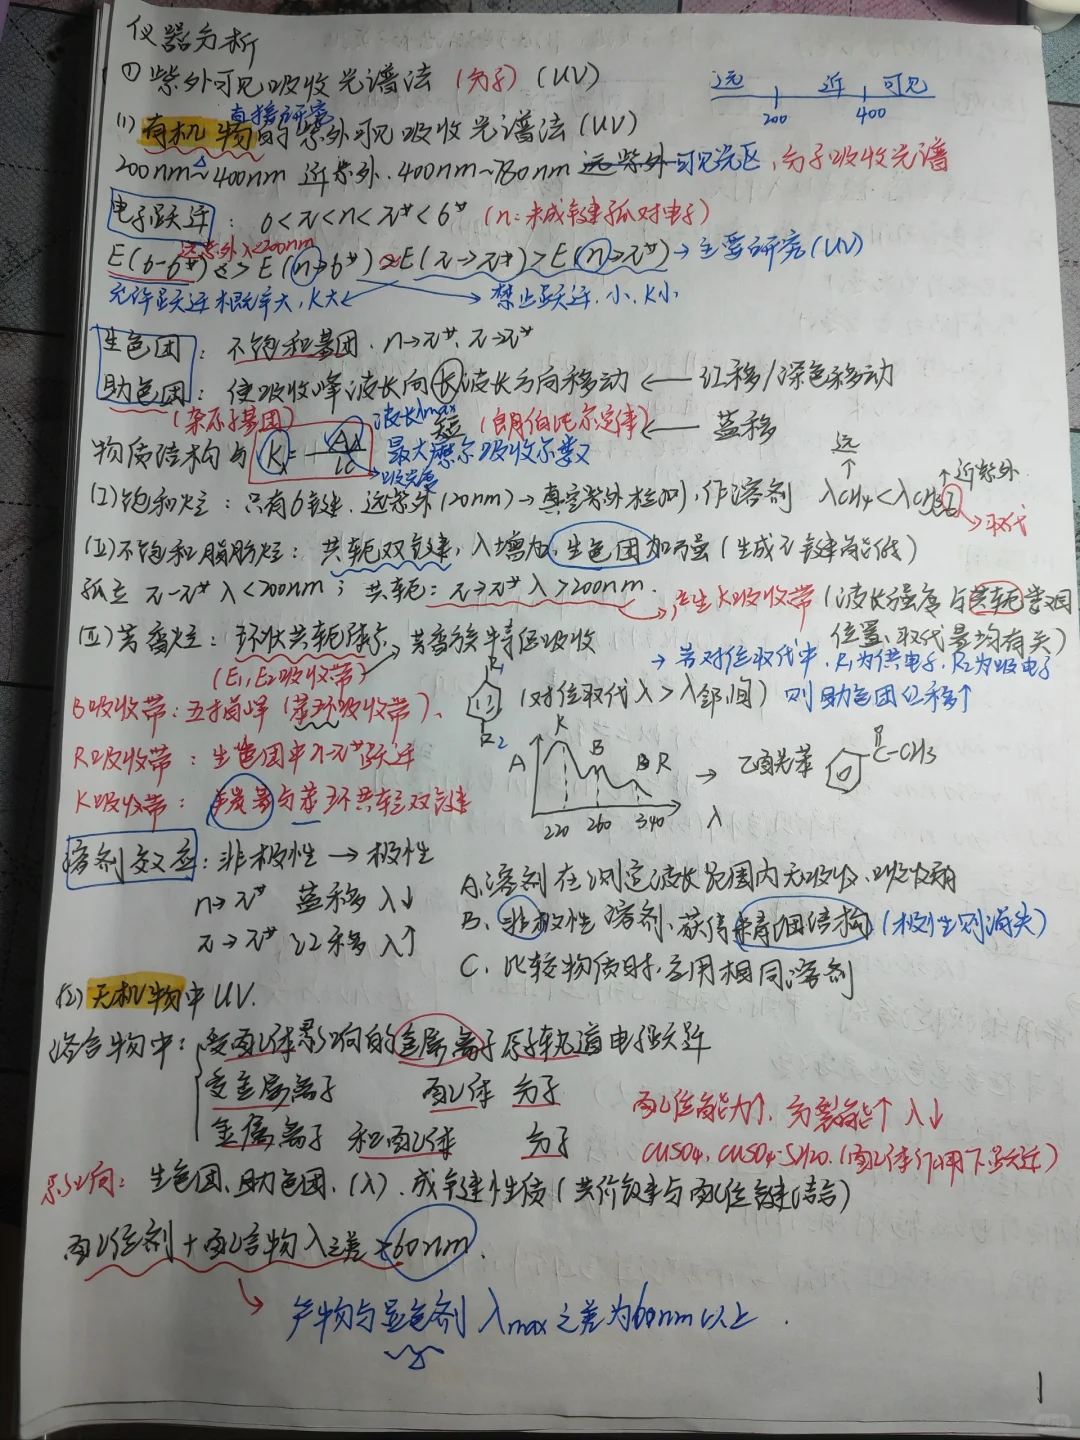 仪器分析
① 紫外可见吸收光谱法 (分子) (UV)
远 近 可见
200 400
直接研究
(1) 有机物的紫外可见吸收光谱法 (UV)
200nm~400nm 近紫外. 400nm~780nm 远紫外 可见光区, 分子吸收光谱
电子跃迁: σ<π<n<π*<σ* (n: 未成键孤对电子)
远紫外 λ<200nm
E(σ-σ*) > E(n→σ*) ≥ E(π→π*) > E(n→π*) → 主要研究(UV)
允许跃迁 概率大, K大 禁止跃迁. 小. K小
生色团: 不饱和基团. n→π*. π→π*
助色团: 使吸收峰波长向长波长方向移动 ← 红移/深色移动
(杂原子基团) 波长λmax 短 (朗伯比尔定律) ← 蓝移
物质结构与 K = A/lc 最大摩尔吸收系数
吸光度
远 近紫外
(I) 饱和烃: 只有σ键. 远紫外(20nm) → 真空紫外检测, 作溶剂 λCH4<λCH3I
→取代
(II) 不饱和脂肪烃: 共轭双键, λ增加, 生色团加强 (生成π键能低)
孤立 π-π* λ<200nm; 共轭: π→π* λ>200nm.
→产生K吸收带 (波长强度与共轭数目位置、取代基均有关)
(III) 芳香烃: 环状共轭体系, 芳香族特征吸收
(E1, E2吸收带)
→ 若对位取代中. R1为供电子, R2为吸电子
则助色团红移↑
R1
R2
(对位取代 λ > λ邻间)
B吸收带: 五指峰 (苯环吸收带).
R吸收带: 生色团中n-π*跃迁
K吸收带: 羰基与苯环共轭双键
A K B R λ
220 260 340
→ 乙酰苯 C-CH3
溶剂效应: 非极性 → 极性
n→π* 蓝移 λ↓
π→π* 红移 λ↑
A. 溶剂在测定波长范围内无吸收.
B. 非极性溶剂. 获得精细结构 (极性则消失)
C. 比较物质时, 应用相同溶剂
(2) 无机物中UV.
络合物中: 受配体影响的金属离子原子轨道电子跃迁
受金属离子 配体 分子
金属离子和配体 分子
配位能力↑. 分裂能↑ λ↓
CuSO4, CuSO4·5H2O. (配体作用下跃迁)
影响: 生色团、助色团. (λ). 成键性质 (共价键与配位键结合)
配位剂+配合物λ之差>60nm.
→ 产物与显色剂λmax之差为60nm以上.
1